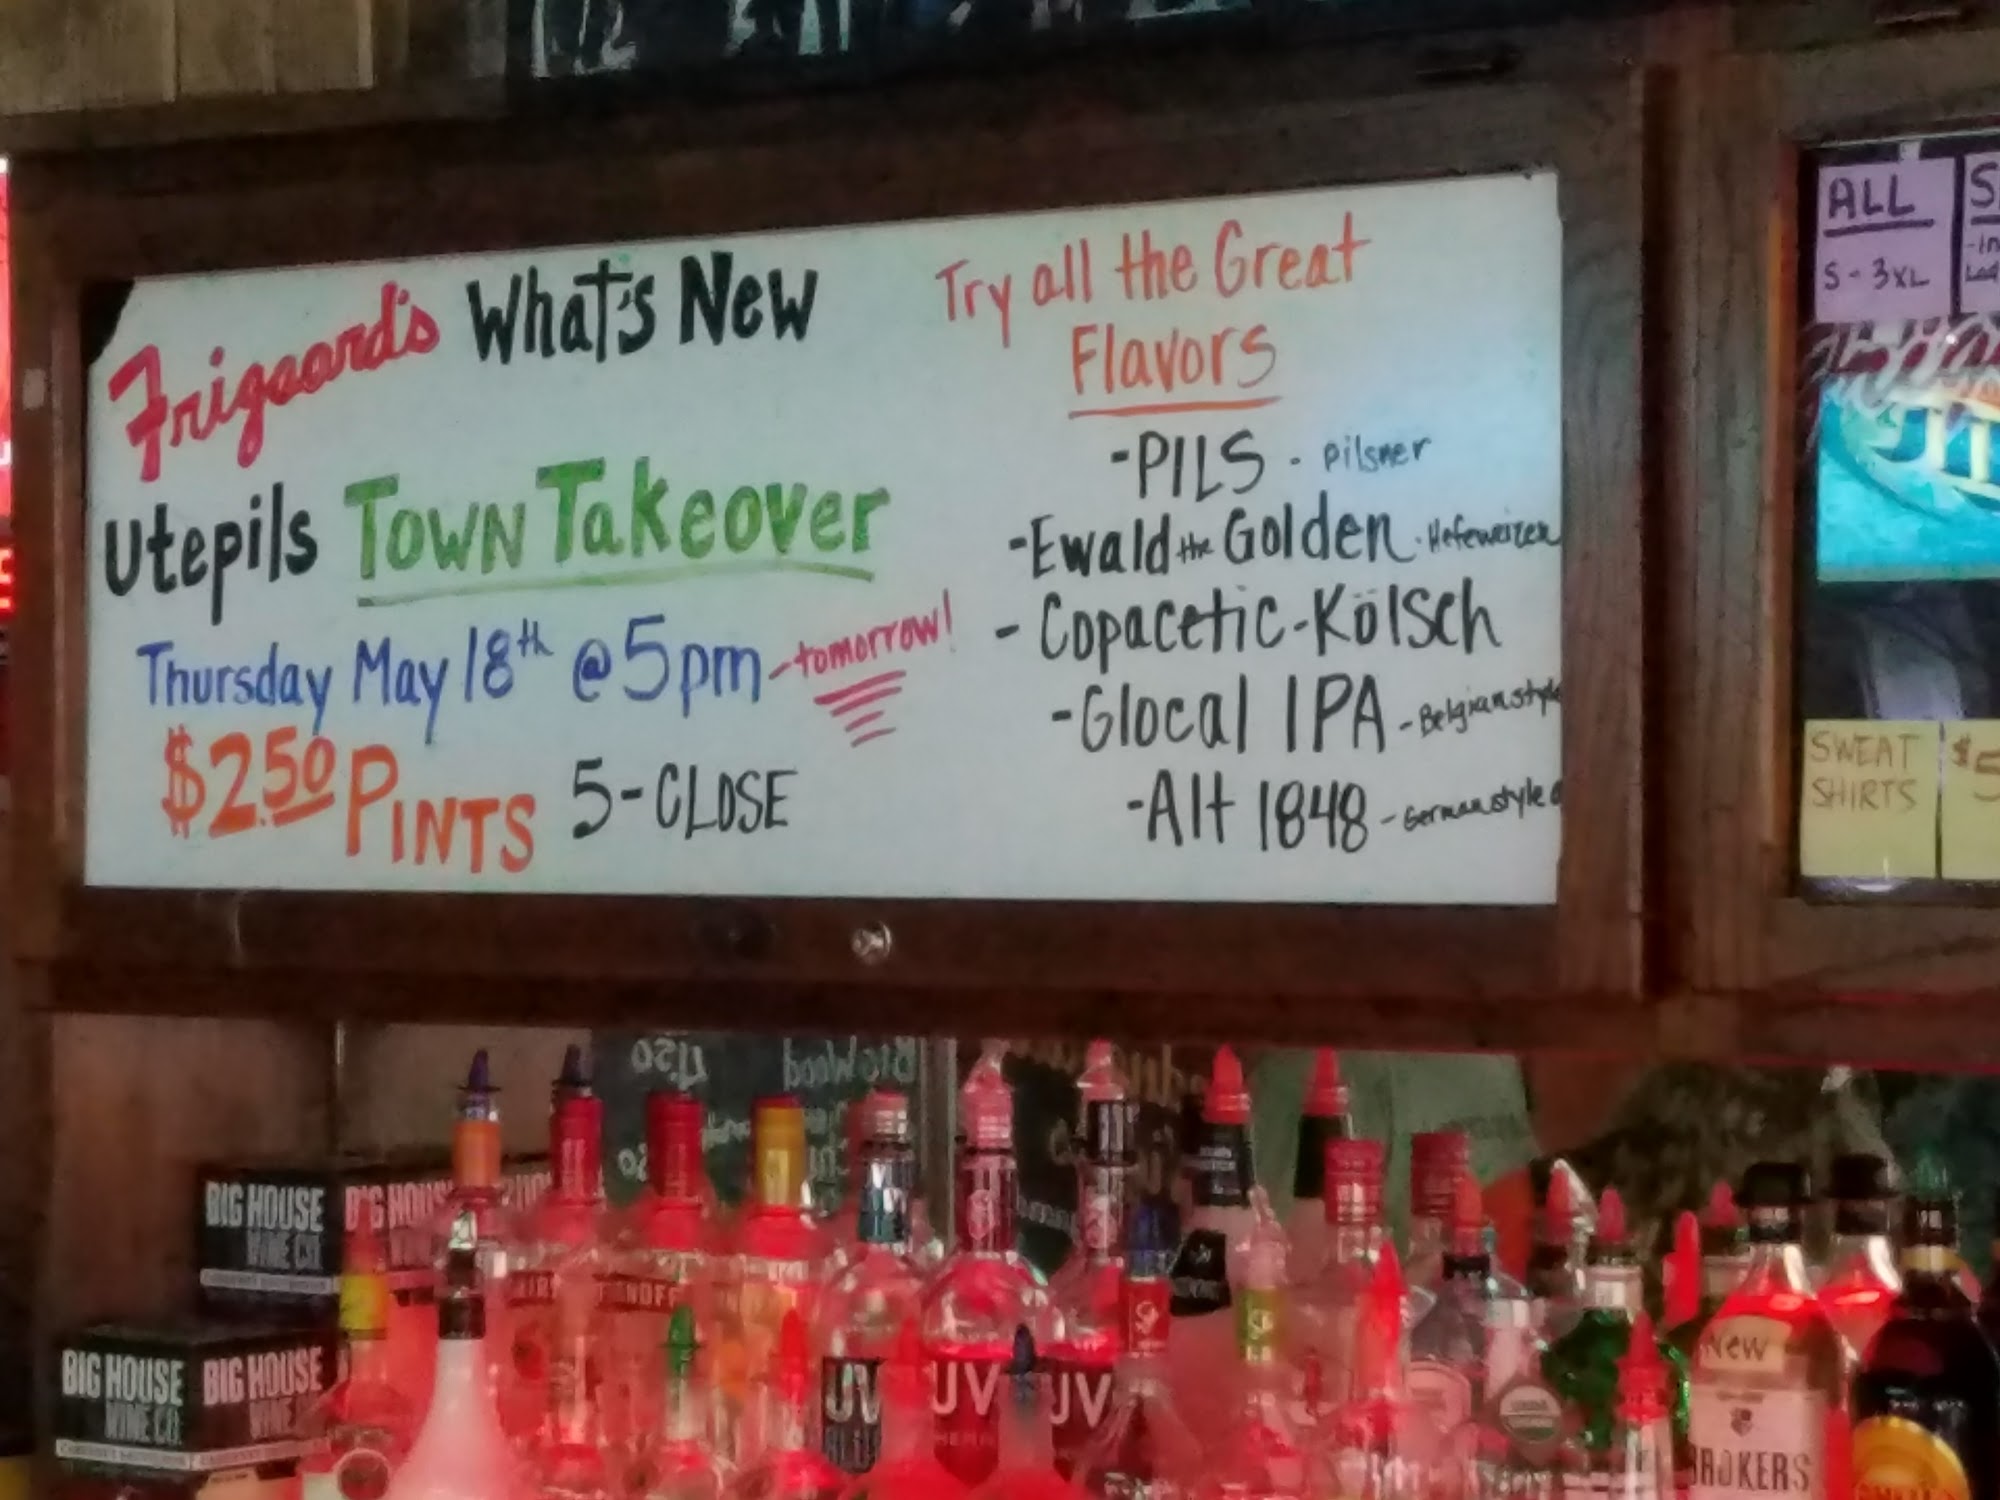 Frigaard's What's New
Utepils Town Takeover
Thursday May 18th @ 5pm - tomorrow!
$2.50 PINTS 5-CLOSE
Try all the Great
Flavors
- PILS - pilsner
- Ewald the Golden - Hefeweizen
- Copacetic - Kölsch
- Glocal IPA - Belgian style
- Alt 1848 - German style
ALL
S - 3XL
SWEAT
SHIRTS
$5
BIG HOUSE
WINE CO.
BIG HOUSE
WINE CO.
BIG HOUSE
WINE CO.
BIG HOUSE
UV
UV
UV
New
BROKERS